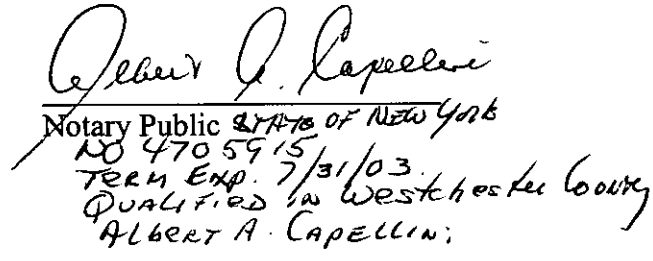 Albert A. Capellini
Notary Public STATE OF NEW YORK
NO 4705915
TERM EXP. 7/31/03
QUALIFIED IN Westchester County
ALBERT A. CAPELLINI